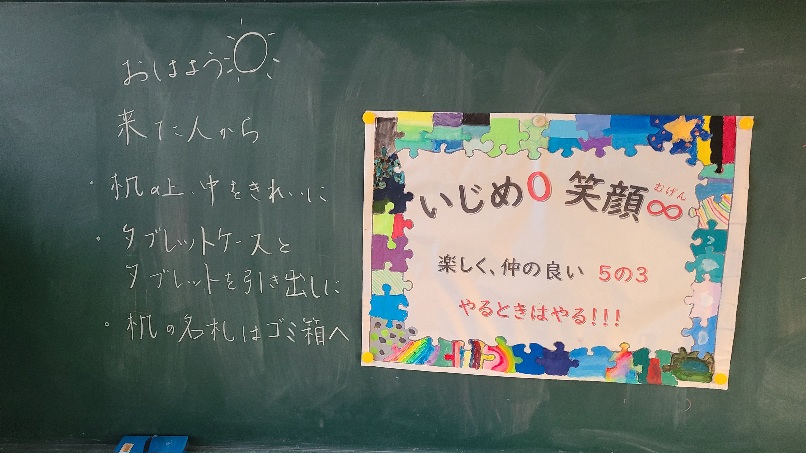 おはよう
来た人から
・机の上、中をきれいに
・タブレットケースと
タブレットを引き出しに
・机の名札はゴミ箱へ
いじめ0 笑顔∞
むげん
楽しく、仲の良い 5の3
やるときはやる!!!